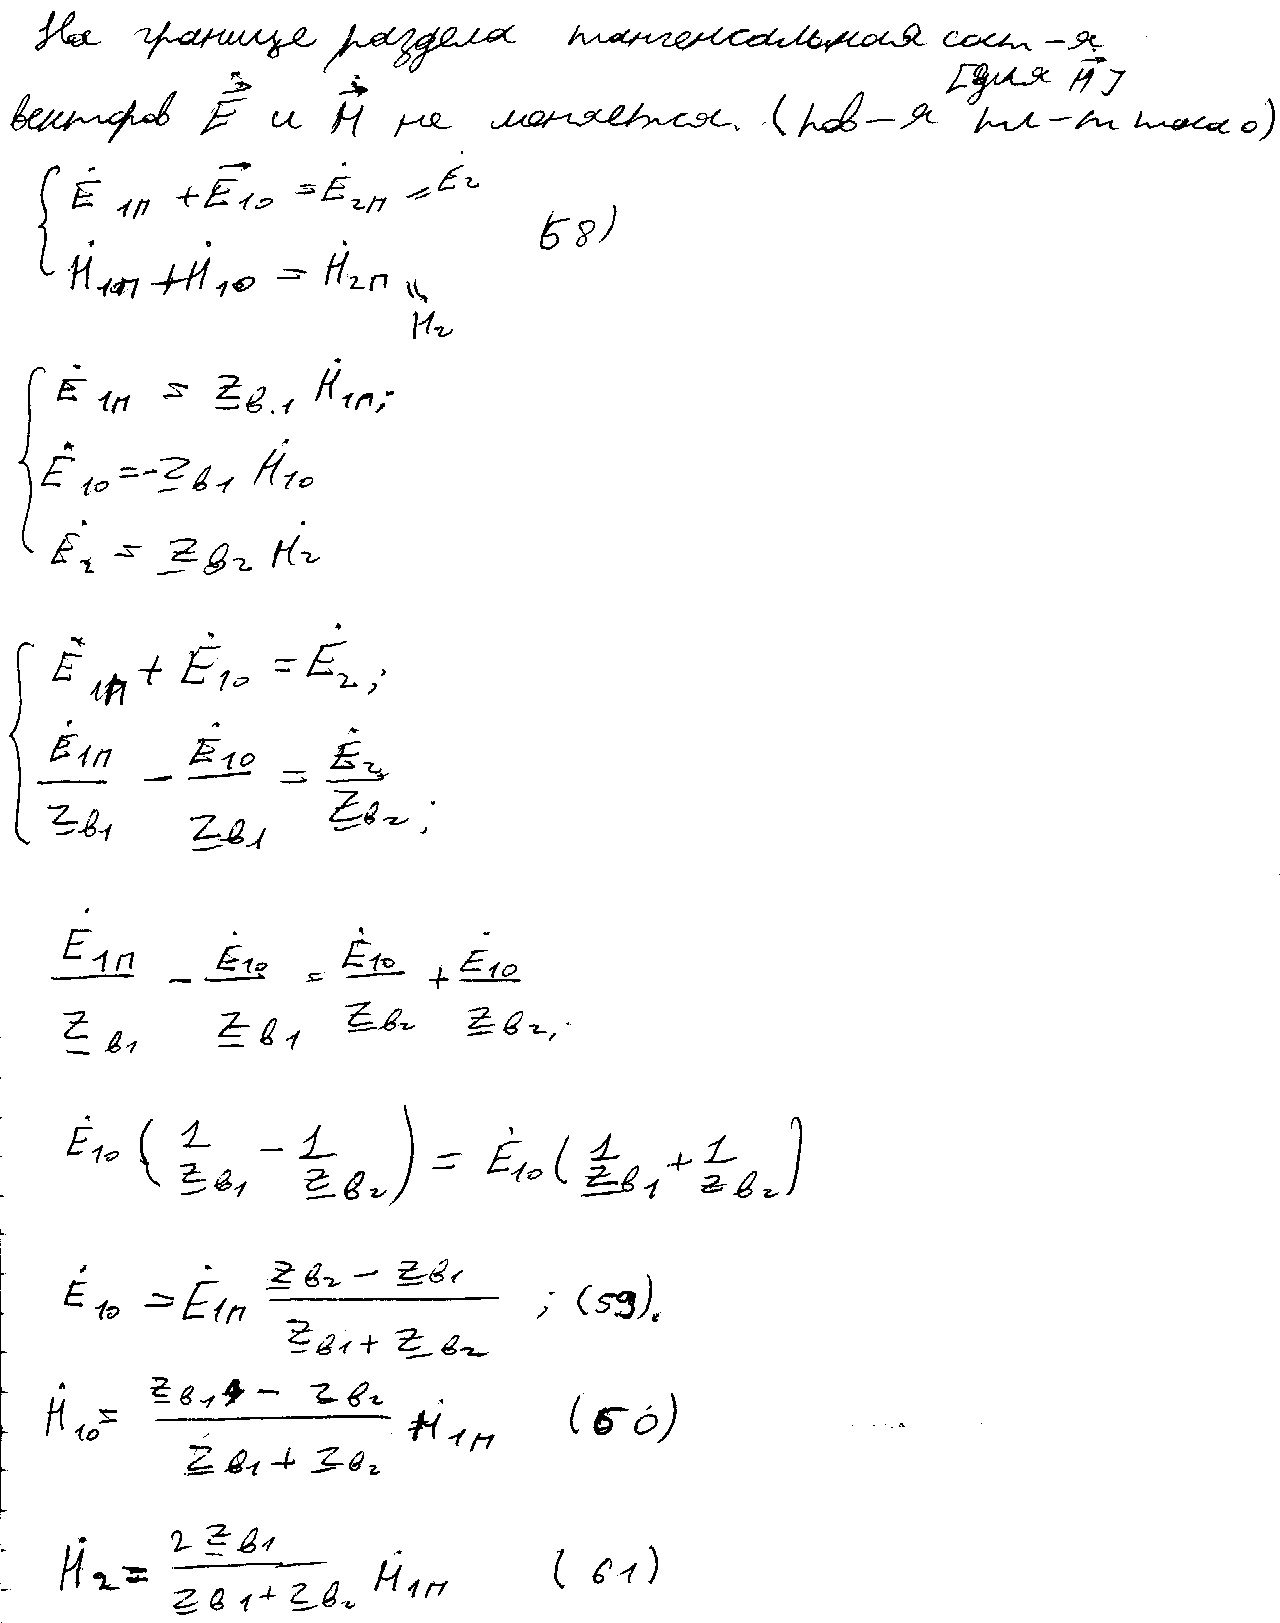 На границе раздела тангенсальная сост-я
[для H⃗]
векторов E⃗ и H⃗ не меняется. (пов-я пл-ти тока)
{ Ė₁п + E⃗₁₀ = Ė₂п = Ė₂
58)
Ḣ₁п + Ḣ₁₀ = Ḣ₂п = H₂
{ Ė₁п = Z̲в.₁ Ḣ₁п;
Ė₁₀ = -Z̲в₁ Ḣ₁₀
Ė₂ = Z̲в₂ Ḣ₂
{ Ė₁п + Ė₁₀ = Ė₂;
Ė₁п/Z̲в₁ - Ė₁₀/Z̲в₁ = Ė₂/Z̲в₂;
Ė₁п/Z̲в₁ - Ė₁₀/Z̲в₁ = Ė₁₀/Z̲в₂ + Ė₁₀/Z̲в₂;
Ė₁₀ (1/Z̲в₁ - 1/Z̲в₂) = Ė₁₀ (1/Z̲в₁ + 1/Z̲в₂)
Ė₁₀ = Ė₁п (Z̲в₂ - Z̲в₁)/(Z̲в₁ + Z̲в₂) ; (59).
Ḣ₁₀ = (Z̲в₁ - Zв₂)/(Z̲в₁ + Z̲в₂) Ḣ₁п (60)
Ḣ₂ = 2Z̲в₁/(Z̲в₁ + Z̲в₂) Ḣ₁п (61)